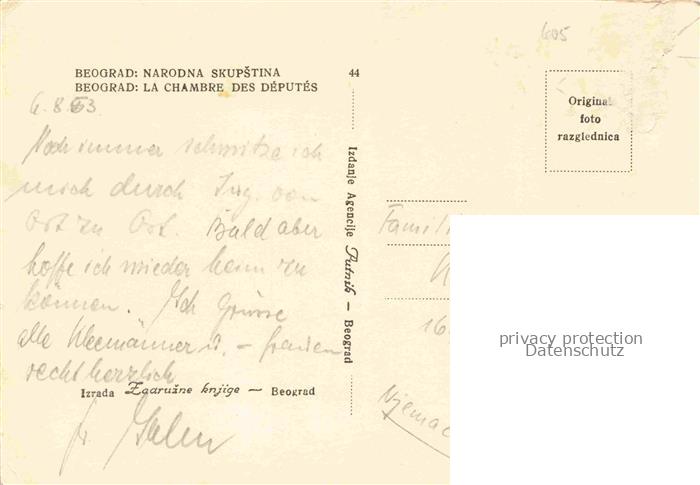 605
BEOGRAD: NARODNA SKUPŠTINA
BEOGRAD: LA CHAMBRE DES DÉPUTÉS
44
Original
foto
razglednica
6.8.63
Noch immer schwitze ich
mich durch Jug. von
Ort zu Ort. Bald aber
hoffe ich wieder heim zu
können. Ich Grüsse
alle
recht herzlich
Izrada Zadružne knjige — Beograd
Izdanje Agencije Putnik — Beograd
Famili
16
Njemač
privacy protection
Datenschutz